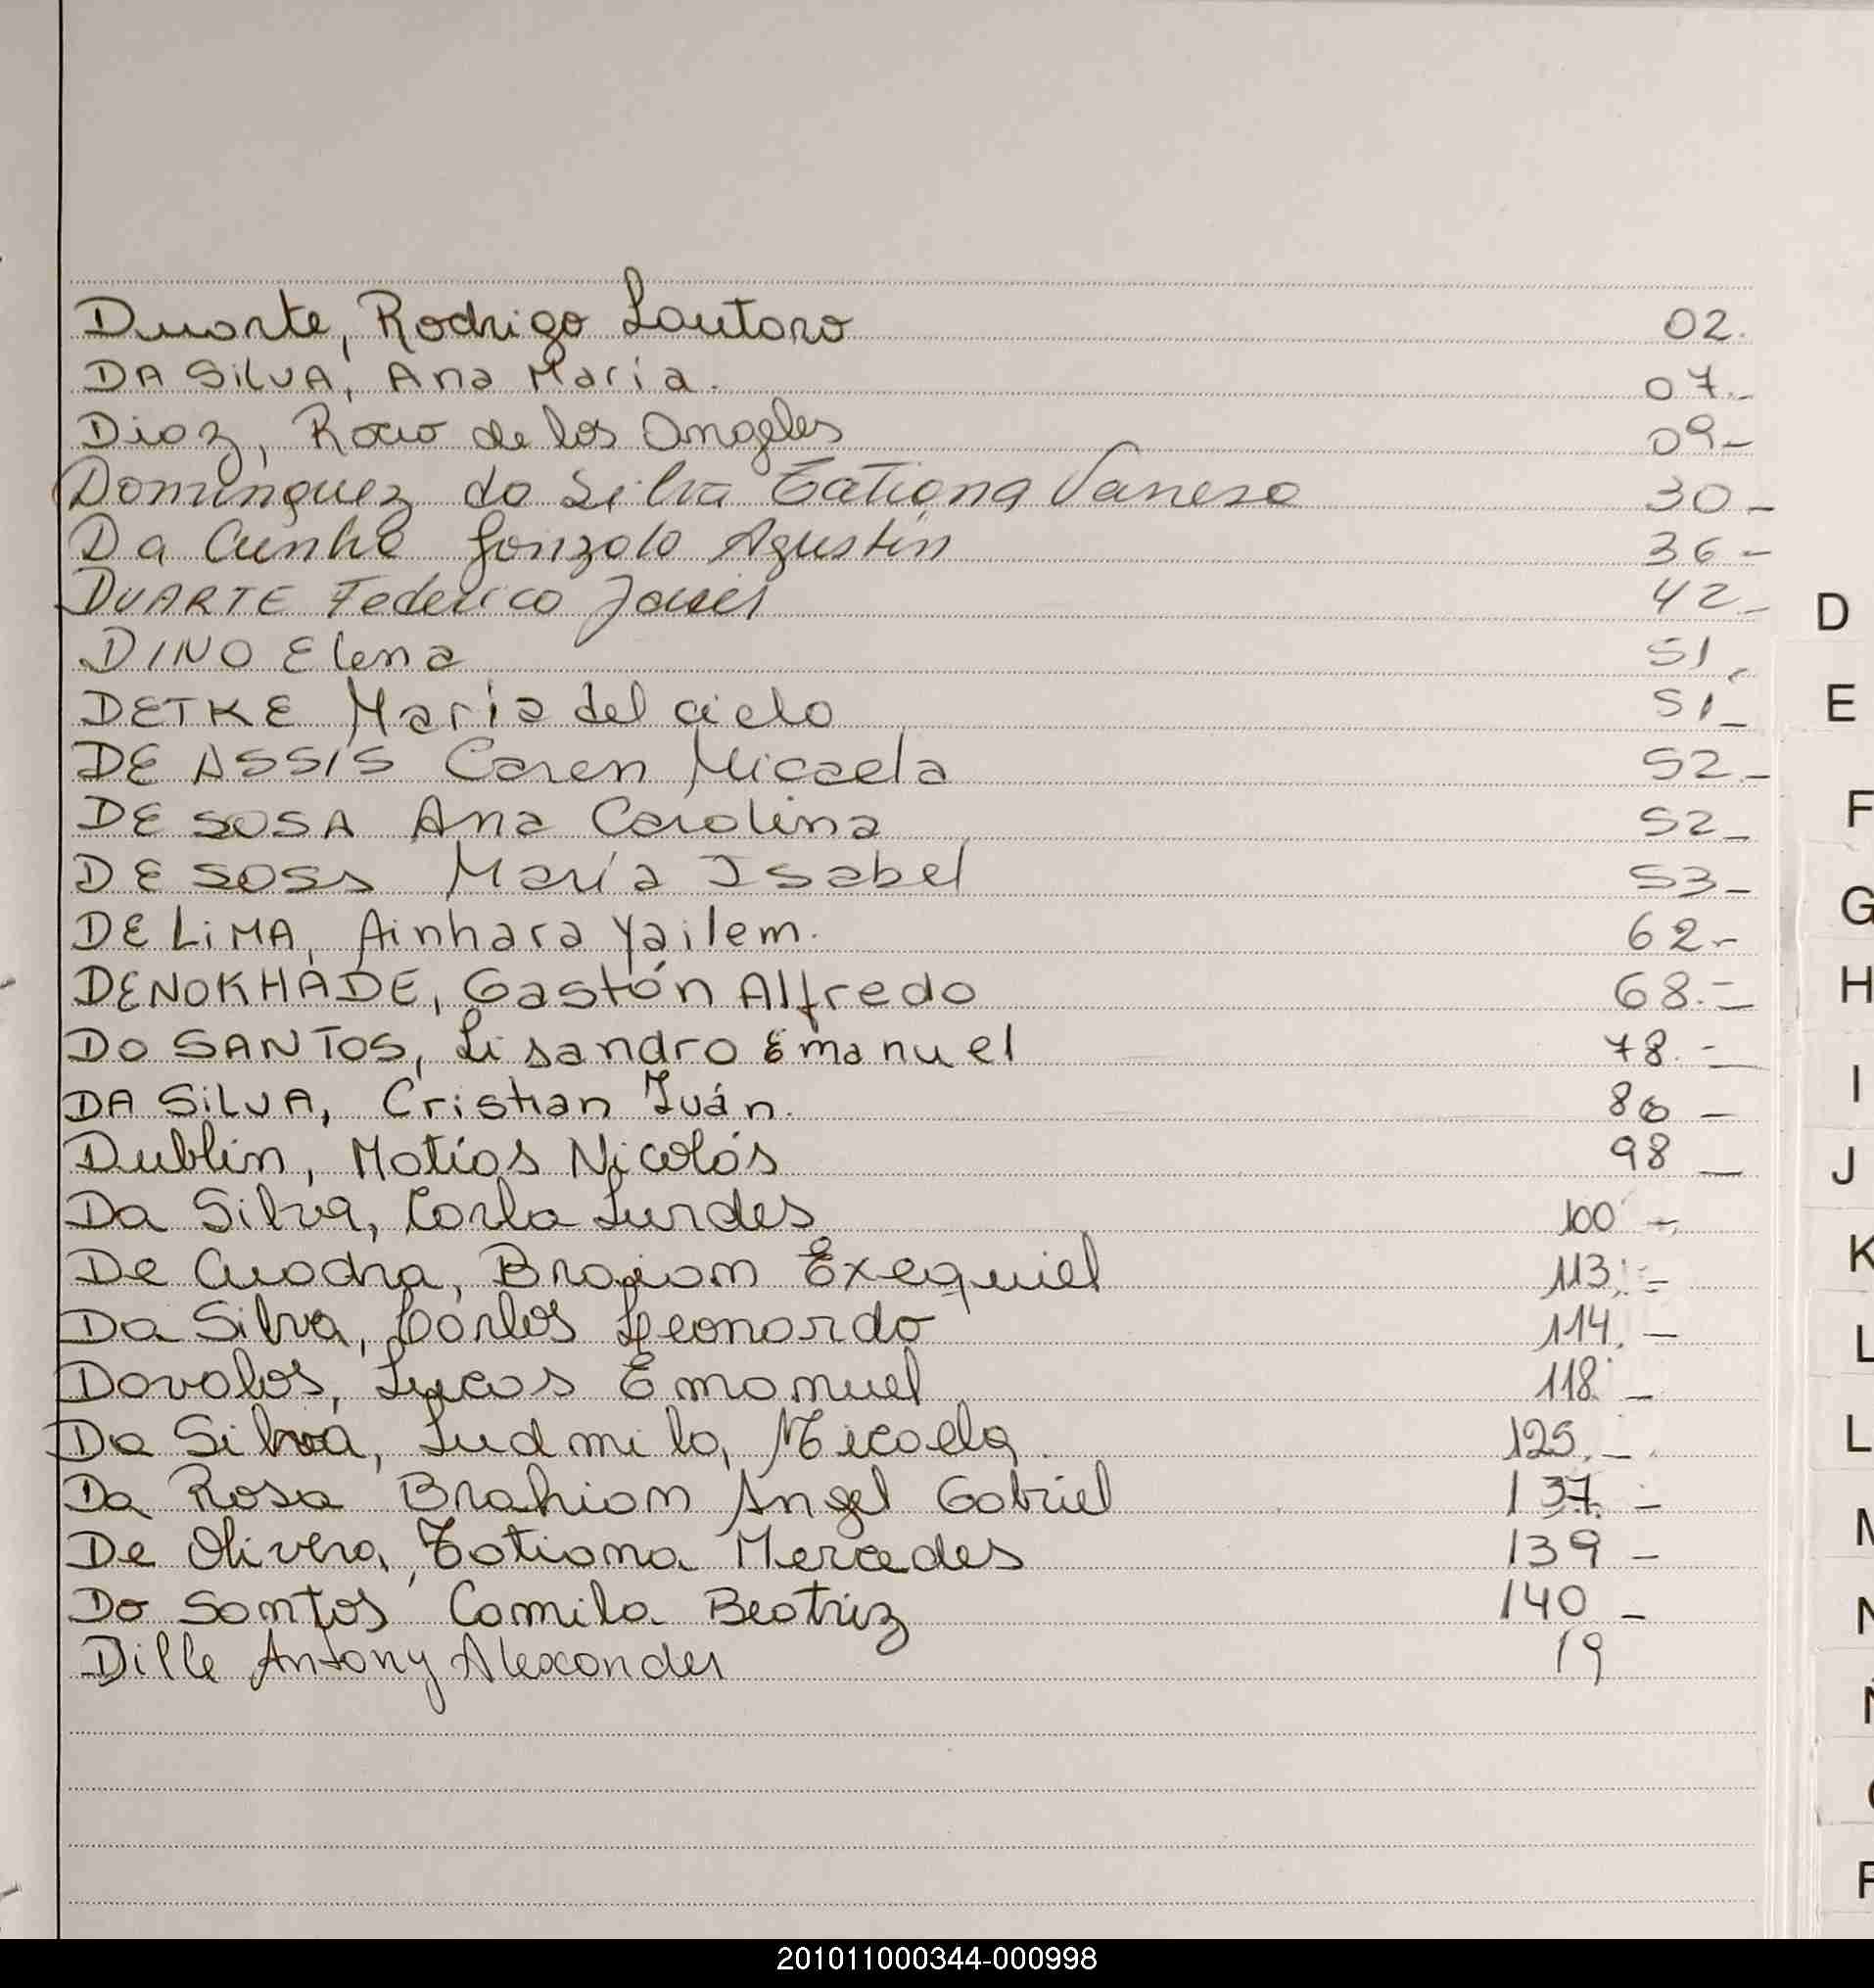 Duarte, Rodrigo Lautaro 02.
DA SILVA, Ana María. 07.-
Diaz, Rocio de los Angeles 09-
Dominguez da Silva Tatiana Vanesa 30-
Da Cunha Gonzalo Agustin 36-
DUARTE Federico Javier 42-
DINO Elena 51.
DETKE María del cielo 51-
DE ASSIS Caren Micaela 52-
DE SOSA Ana Carolina 52-
DE SOSA María Isabel 53-
DE LIMA, Ainhara Yailem. 62.-
DENOKHADE, Gastón Alfredo 68.-
DO SANTOS, Lisandro Emanuel 78.-
DA SILVA, Cristian Iván. 80-
Dublin, Matías Nicolás 98-
Da Silva, Carla Lurdes 100-
De Cuadra, Braian Exequiel 113.-
Da Silva, Carlos Leonardo 114.-
Davalos, Lucas Emanuel 118.-
Da Silva, Ludmila, Micaela. 125.-
Da Rosa Brahian Angel Gabriel 137.-
De Olivera, Tatiana Mercedes 139-
Do Santos Camila Beatriz 140-
Dille Antony Alexander 19
D
E
F
G
H
I
J
K
L
L
M
N
201011000344-000998